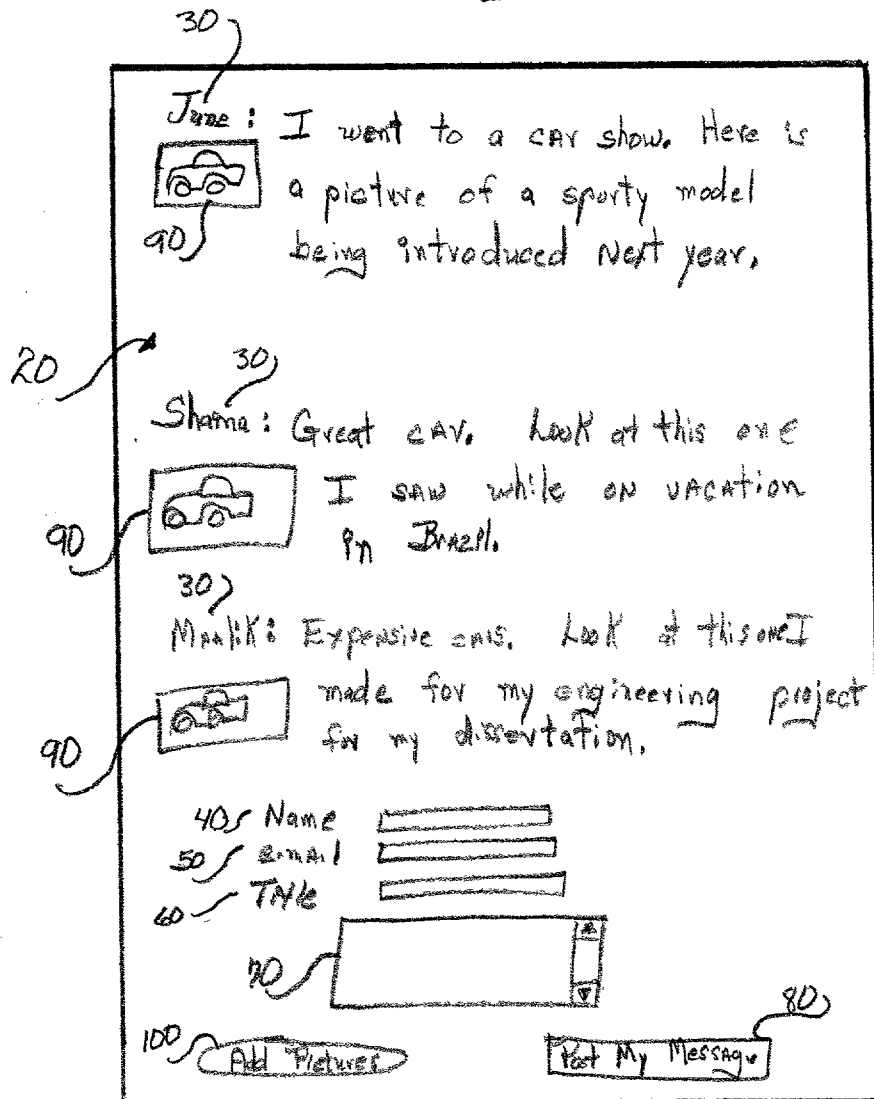 30
June: I went to a car show. Here is
90 a picture of a sporty model
being introduced Next year.
20
30
Shama: Great car. Look at this one
90 I saw while on vacation
in Brazil.
30
Maalik: Expensive cars. Look at this one I
90 made for my engineering project
for my dissertation.
40 Name
50 e-mail
60 Title
70
80
100 Add Pictures Post My Message